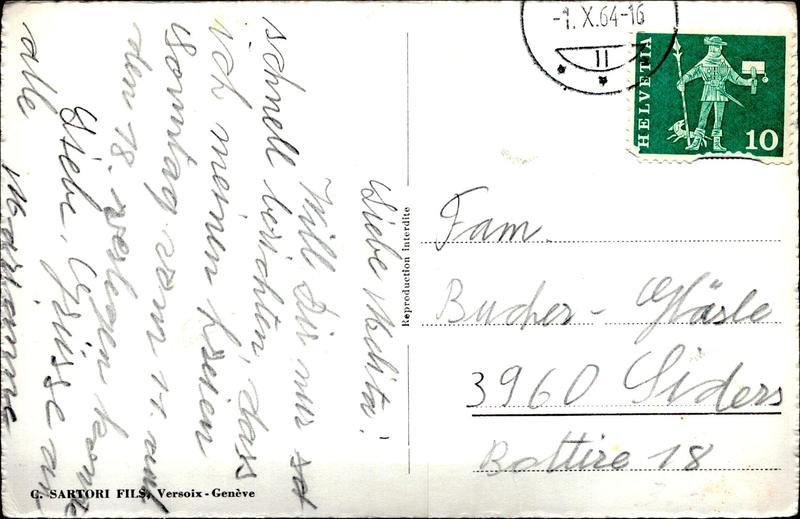 Liebe Melita!
Will Dir nur so
schnell berichten, dass
ich meinen freien
Sonntag vom 11. auf
den 18. verlegen konnte
Liebe Grüsse an
alle
Marianne
Reproduction interdite
-1.X.64-16
11
HELVETIA
10
Fam.
Bucher - Gläsle
3960 Siders
Bottire 18
C. SARTORI FILS, Versoix - Genève